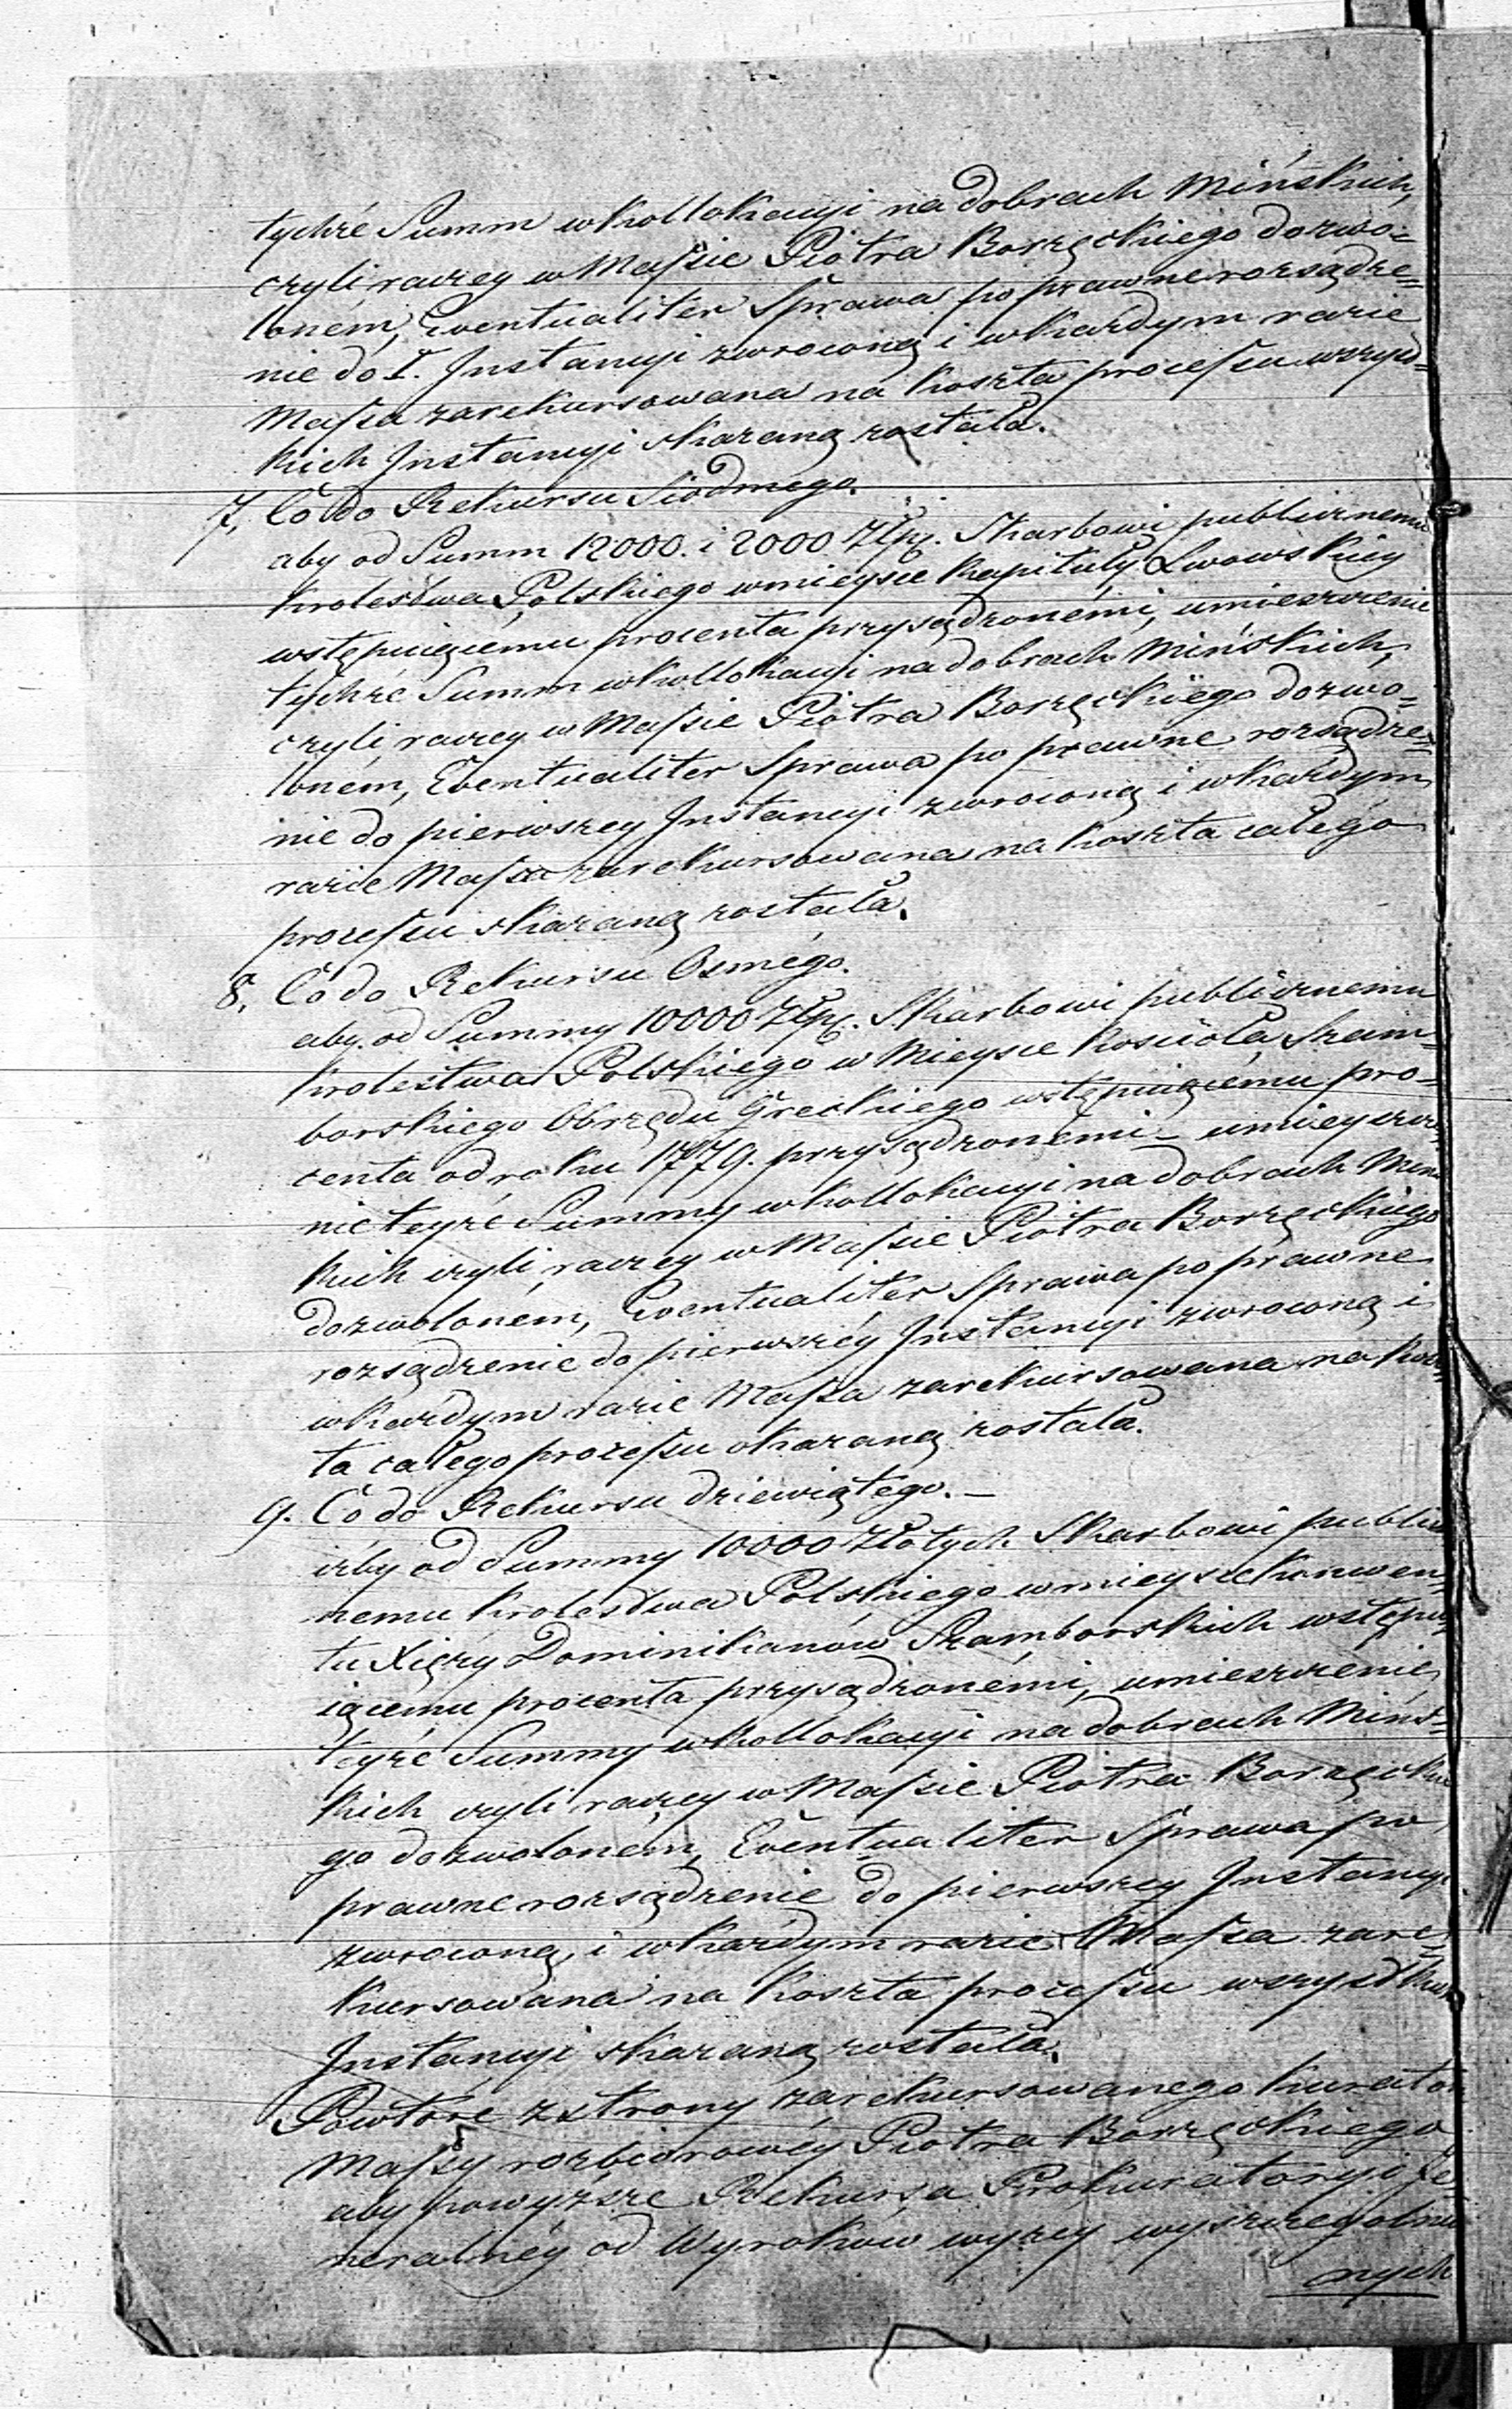 tychże Summ w kollokacyi na dobrach Mińskich,
czyli raczey w Massie Piotra Borzęckiego dozwo=
loném, Eventualiter Sprawa po prawne rozsądze=
nie do I. Instancyi zwroconą i w każdym razie
Massa zarekursowana na koszta processu wszyst=
kich Instancyi skazaną została.
7, Co do Rekursu Siodmego.
aby od Summ 12000. i 2000 Złp. Skarbowi publicznemu
Krolestwa Polskiego w mieysce Kapituły Lwowskiey
wstępuiącemu procenta przysądzonemi, umieszczenie
tychże Summ w kollokacyi na dobrach Mińskich,
czyli raczey w Massie Piotra Borzęckiego dozwo=
loném, Eventualiter Sprawa po prawne rozsądze=
nie do pierwszey Instancyi zwroconą i w każdym
razie Massa zarekursowana na koszta całego
processu skazaną została.
8, Co do Rekursu Osmego.
aby od Summy 10000 Złp. Skarbowi publicznemu
Krolestwa Polskiego w Mieysce Kościoła Szam=
borskiego Obrzędu Greckiego wstępuiącemu pro=
centa od roku 1779. przysądzonemi – umieyszcze
nie teyże Summy w kollokacyi na dobrach Miń
kich czyli raczey w Massie Piotra Borzęckiego
dozwoloném, Eventualiter Sprawa po prawne
rozsądzenie do pierwszéy Instancyi zwroconą i
w każdym razie Massa zarekursowana na kosz=
ta całego processu skazaną została.
9. Co do Rekursu dziewiątego. –
iżby od Summy 10000 Złotych Skarbowi publicz
nemu Krolestwa Polskiego w mieysce Konwen=
tu Xięży Dominikanów Szamborskich wstępu
iącemu procenta przysądzonémi, umieszczenie
teyże Summy w kollokacyi na dobrach Mińs=
kich czyli raczey w Massie Piotra Borzęckie
go dozwoloném, Eventualiter Sprawa po
prawne rozsądzenie do pierwszey Instancyi
zwroconą, i w każdym razie Massa zare=
kursowana na koszta processu wszystkich
Instancyi skazaną została.
Powtóre z strony zarekursowanego Kurator
Massy rozbiorowéy Piotra Borzęckiego
aby powyższe Rekursa Prokuratoryi Je=
neralnéy od Wyroków wyżey wyszczegolnio
nych